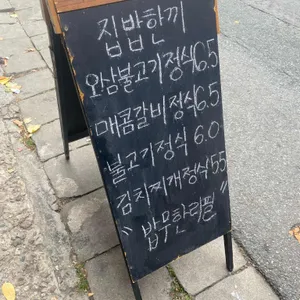 집밥한끼
오삼불고기정식6.5
매콤갈비정식6.5
불고기정식 6.0
김치찌개정식55
"밥무한리필"